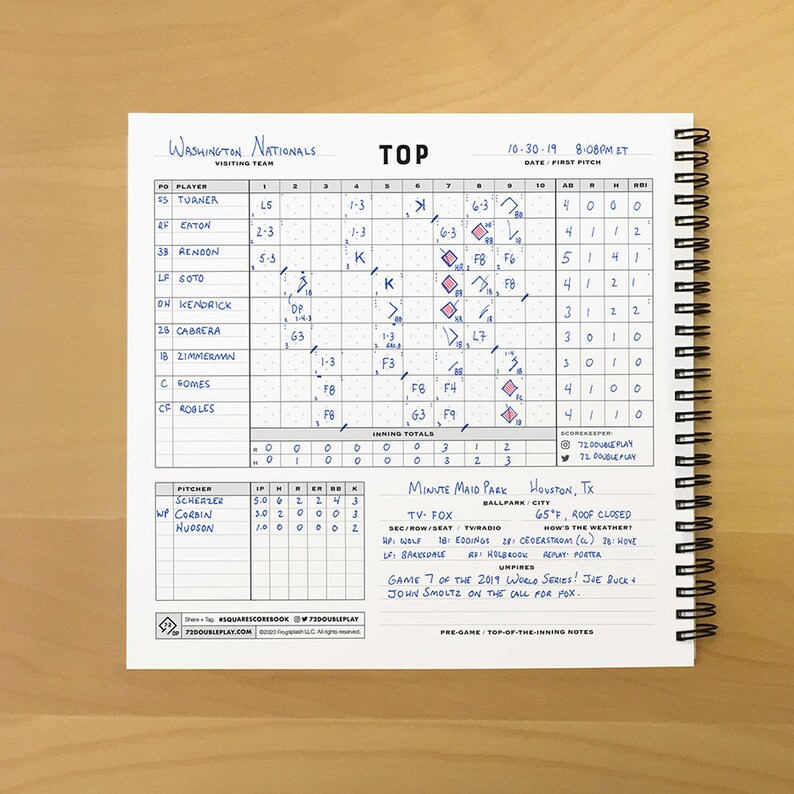 Washington Nationals TOP 10-30-19 8:08PM ET
VISITING TEAM DATE / FIRST PITCH
PO PLAYER 1 2 3 4 5 6 7 8 9 10 AB R H RBI
SS TURNER L5 1-3 K 6-3 BB 4 0 0 0
RF EATON 2-3 1-3 6-3 BB 1B 4 1 1 2
3B RENDON 5-3 K HR F8 F6 5 1 4 1
LF SOTO 1B K BB 1B F8 4 1 2 1
DH KENDRICK DP 1-4-3 BB HR 3 1 2 2
2B CABRERA G3 1-3 1B L7 3 0 1 0
1B ZIMMERMAN 1-3 F3 BB 1-4 1B 3 0 1 0
C GOMES F8 F8 F4 FC 4 1 0 0
CF ROBLES F8 G3 F9 1B 4 1 1 0
INNING TOTALS SCOREKEEPER:
R 0 0 0 0 0 0 3 1 2 72DOUBLEPLAY
H 0 1 0 0 0 0 3 2 3 72DOUBLEPLAY
PITCHER IP H R ER BB K
SCHERZER 5.0 6 2 2 4 3
WP CORBIN 3.0 2 0 0 0 3
HUDSON 1.0 0 0 0 0 2
Minute Maid Park Houston, Tx
BALLPARK / CITY
TV- FOX 65°F, ROOF CLOSED
SEC/ROW/SEAT / TV/RADIO HOW'S THE WEATHER?
HP: WOLF 1B: EDDINGS 2B: CEDERSTROM (CC) 3B: HOYE
LF: BARKSDALE RF: HOLBROOK REPLAY: PORTER
UMPIRES
GAME 7 OF THE 2019 WORLD SERIES! JOE BUCK +
JOHN SMOLTZ ON THE CALL FOR FOX.
PRE-GAME / TOP-OF-THE-INNING NOTES
72 DP Share + Tag: #SQUARESCOREBOOK 72DOUBLEPLAY
72DOUBLEPLAY.COM ©2020 Frogriplash LLC. All rights reserved.